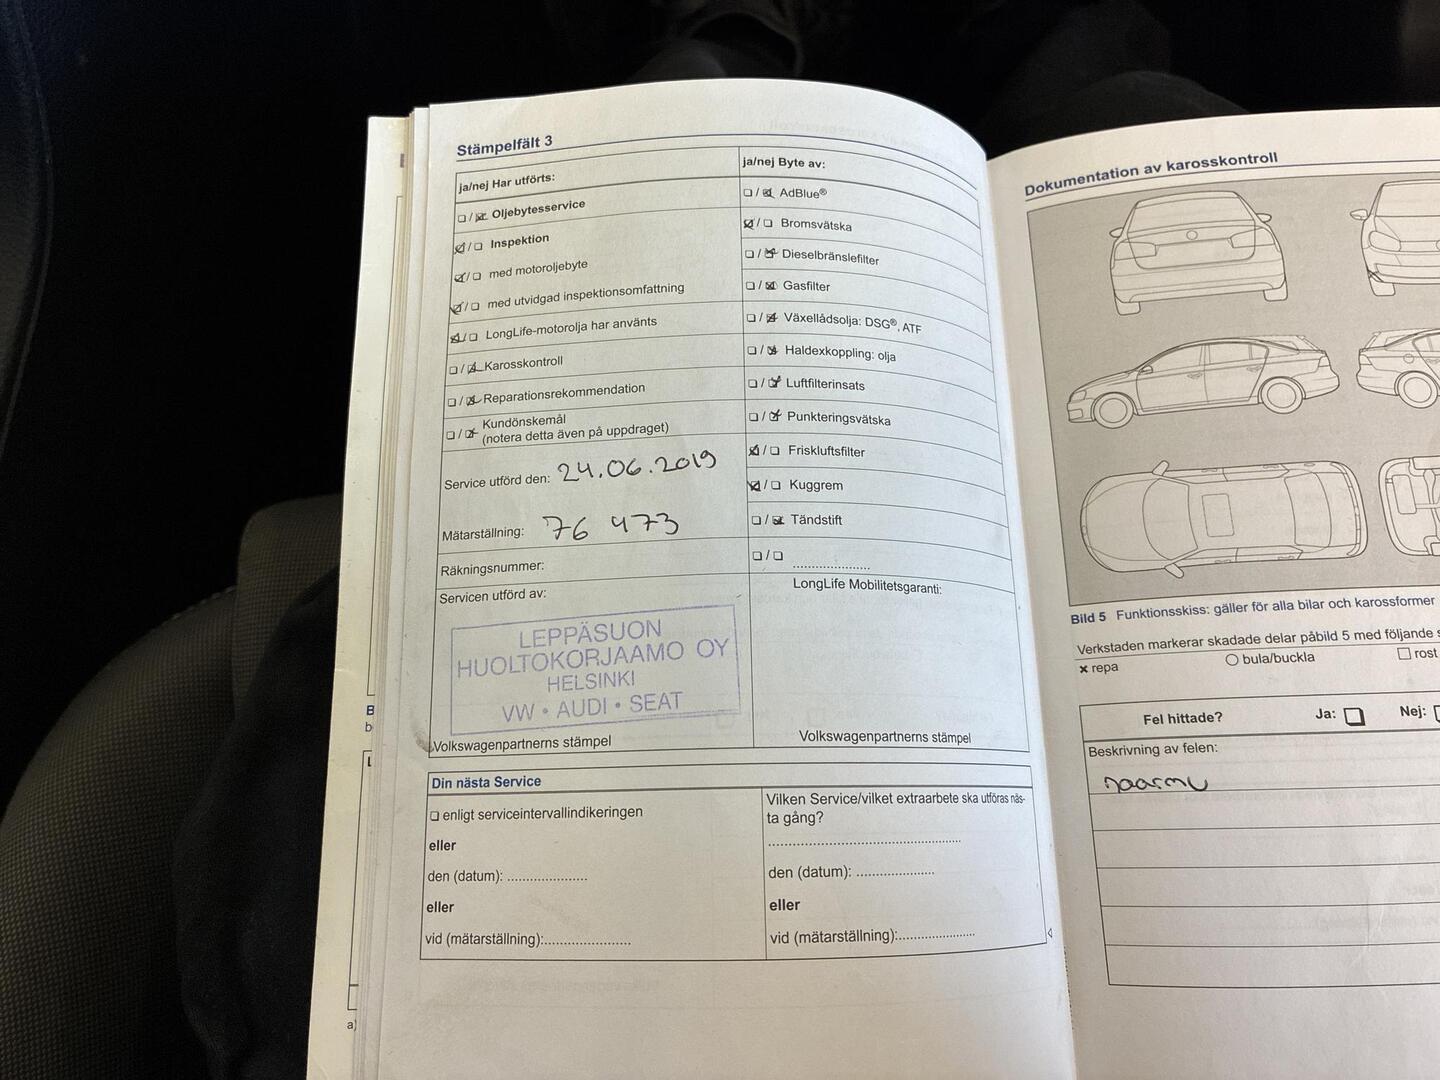 Stämpelfält 3
ja/nej Har utförts:
☐ / ☒ Oljebytesservice
☒ / ☐ Inspektion
☒ / ☐ med motoroljebyte
☒ / ☐ med utvidgad inspektionsomfattning
☒ / ☐ LongLife-motorolja har använts
☐ / ☒ Karosskontroll
☐ / ☒ Reparationsrekommendation
☐ / ☒ Kundönskemål
(notera detta även på uppdraget)
Service utförd den: 24.06.2019
Mätarställning: 76 473
Räkningsnummer:
Servicen utförd av:
LEPPÄSUON
HUOLTOKORJAAMO OY
HELSINKI
VW • AUDI • SEAT
Volkswagenpartnerns stämpel
ja/nej Byte av:
☐ / ☒ AdBlue®
☒ / ☐ Bromsvätska
☐ / ☒ Dieselbränslefilter
☐ / ☒ Gasfilter
☐ / ☒ Växellådsolja: DSG®, ATF
☐ / ☒ Haldexkoppling: olja
☐ / ☒ Luftfilterinsats
☐ / ☒ Punkteringsvätska
☒ / ☐ Friskluftsfilter
☒ / ☐ Kuggrem
☐ / ☒ Tändstift
☐ / ☐ .....................
LongLife Mobilitetsgaranti:
Volkswagenpartnerns stämpel
Din nästa Service
☐ enligt serviceintervallindikeringen
eller
den (datum): .....................
eller
vid (mätarställning):.....................
Vilken Service/vilket extraarbete ska utföras näs-
ta gång?
.....................
den (datum): .....................
eller
vid (mätarställning):.....................
Dokumentation av karosskontroll
Bild 5 Funktionsskiss: gäller för alla bilar och karossformer
Verkstaden markerar skadade delar påbild 5 med följande s
× repa ○ bula/buckla ☐ rost
Fel hittade? Ja: ☐ Nej:
Beskrivning av felen: